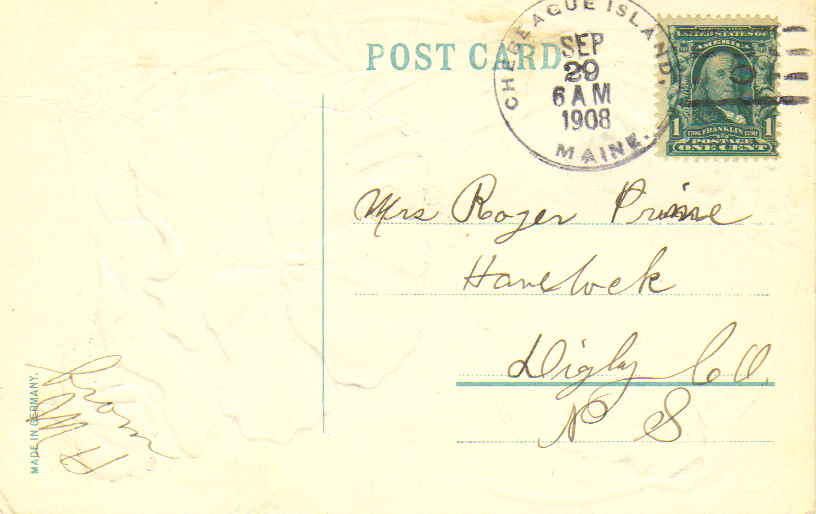 POST CARD
CHEBEAGUE ISLAND.
SEP
29
6 AM
1908
MAINE.
UNITED STATES OF
AMERICA
1 FRANKLIN 1
POSTAGE
ONE CENT
Mrs Roger Prime
Havelock
Digby CO.
N S
From
MADE IN GERMANY.